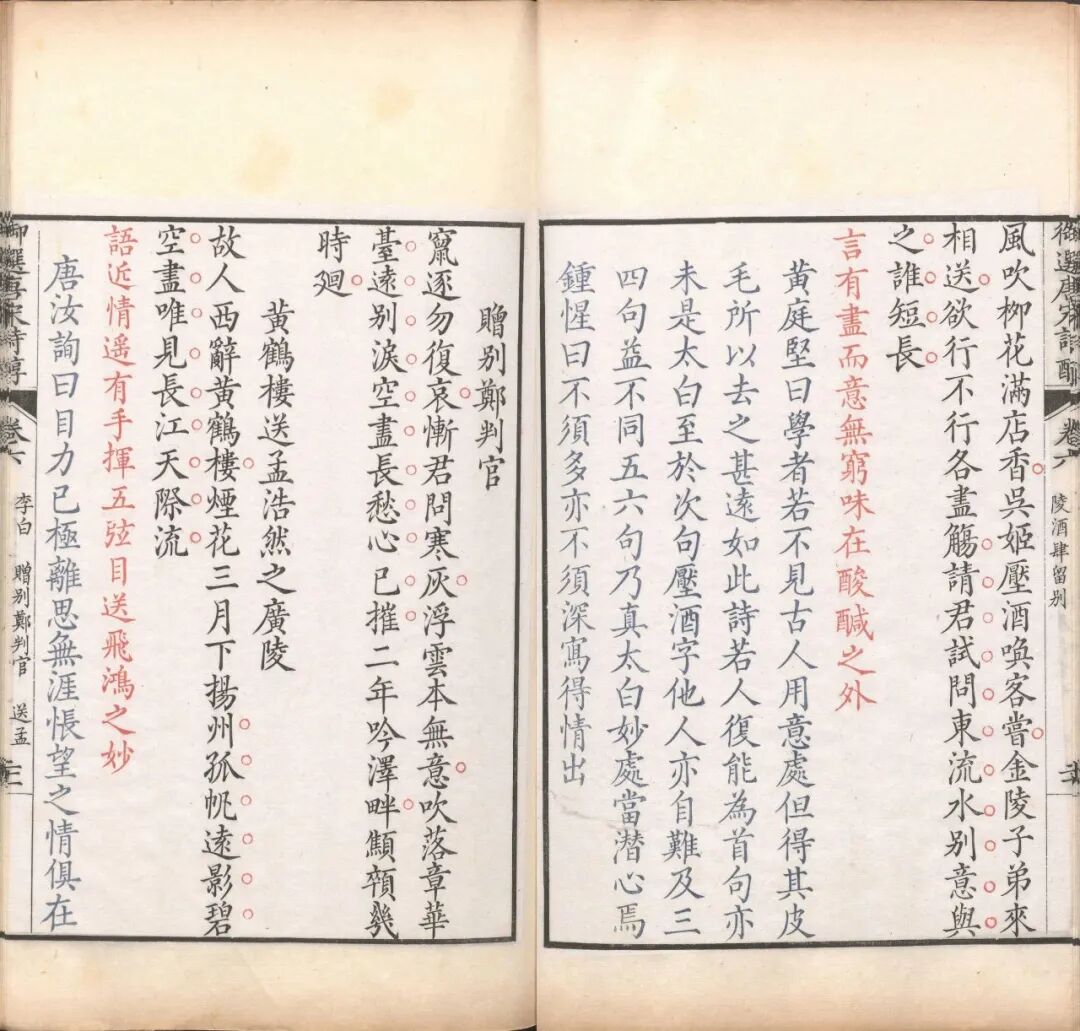 風吹栁花滿店香吳姬壓酒喚客嘗金陵子弟來
相送欲行不行各盡觴請君試問東流水别意與
之誰短長
言有盡而意無窮味在酸醎之外
黄庭堅曰學者若不見古人用意處但得其皮
毛所以去之甚遠如此詩若人復能為首句亦
未是太白至於次句壓酒字他人亦自難及三
四句益不同五六句乃真太白妙處當潜心焉
鍾惺曰不須多亦不須深寫得情出
卷六
陵酒肆留别
贈别鄭判官
竄逐勿復哀慚君問寒灰浮雲本無意吹落章華
臺遠别淚空盡長愁心已摧二年吟澤畔顦顇幾
時廻
黄鶴樓送孟浩然之廣陵
故人西辭黄鶴樓煙花三月下揚州孤帆遠影碧
空盡唯見長江天際流
語近情遥有手揮五弦目送飛鴻之妙
唐汝詢曰目力已極離思無涯悵望之情俱在
御選唐宋詩醇
卷六
李白 贈别鄭判官 送孟